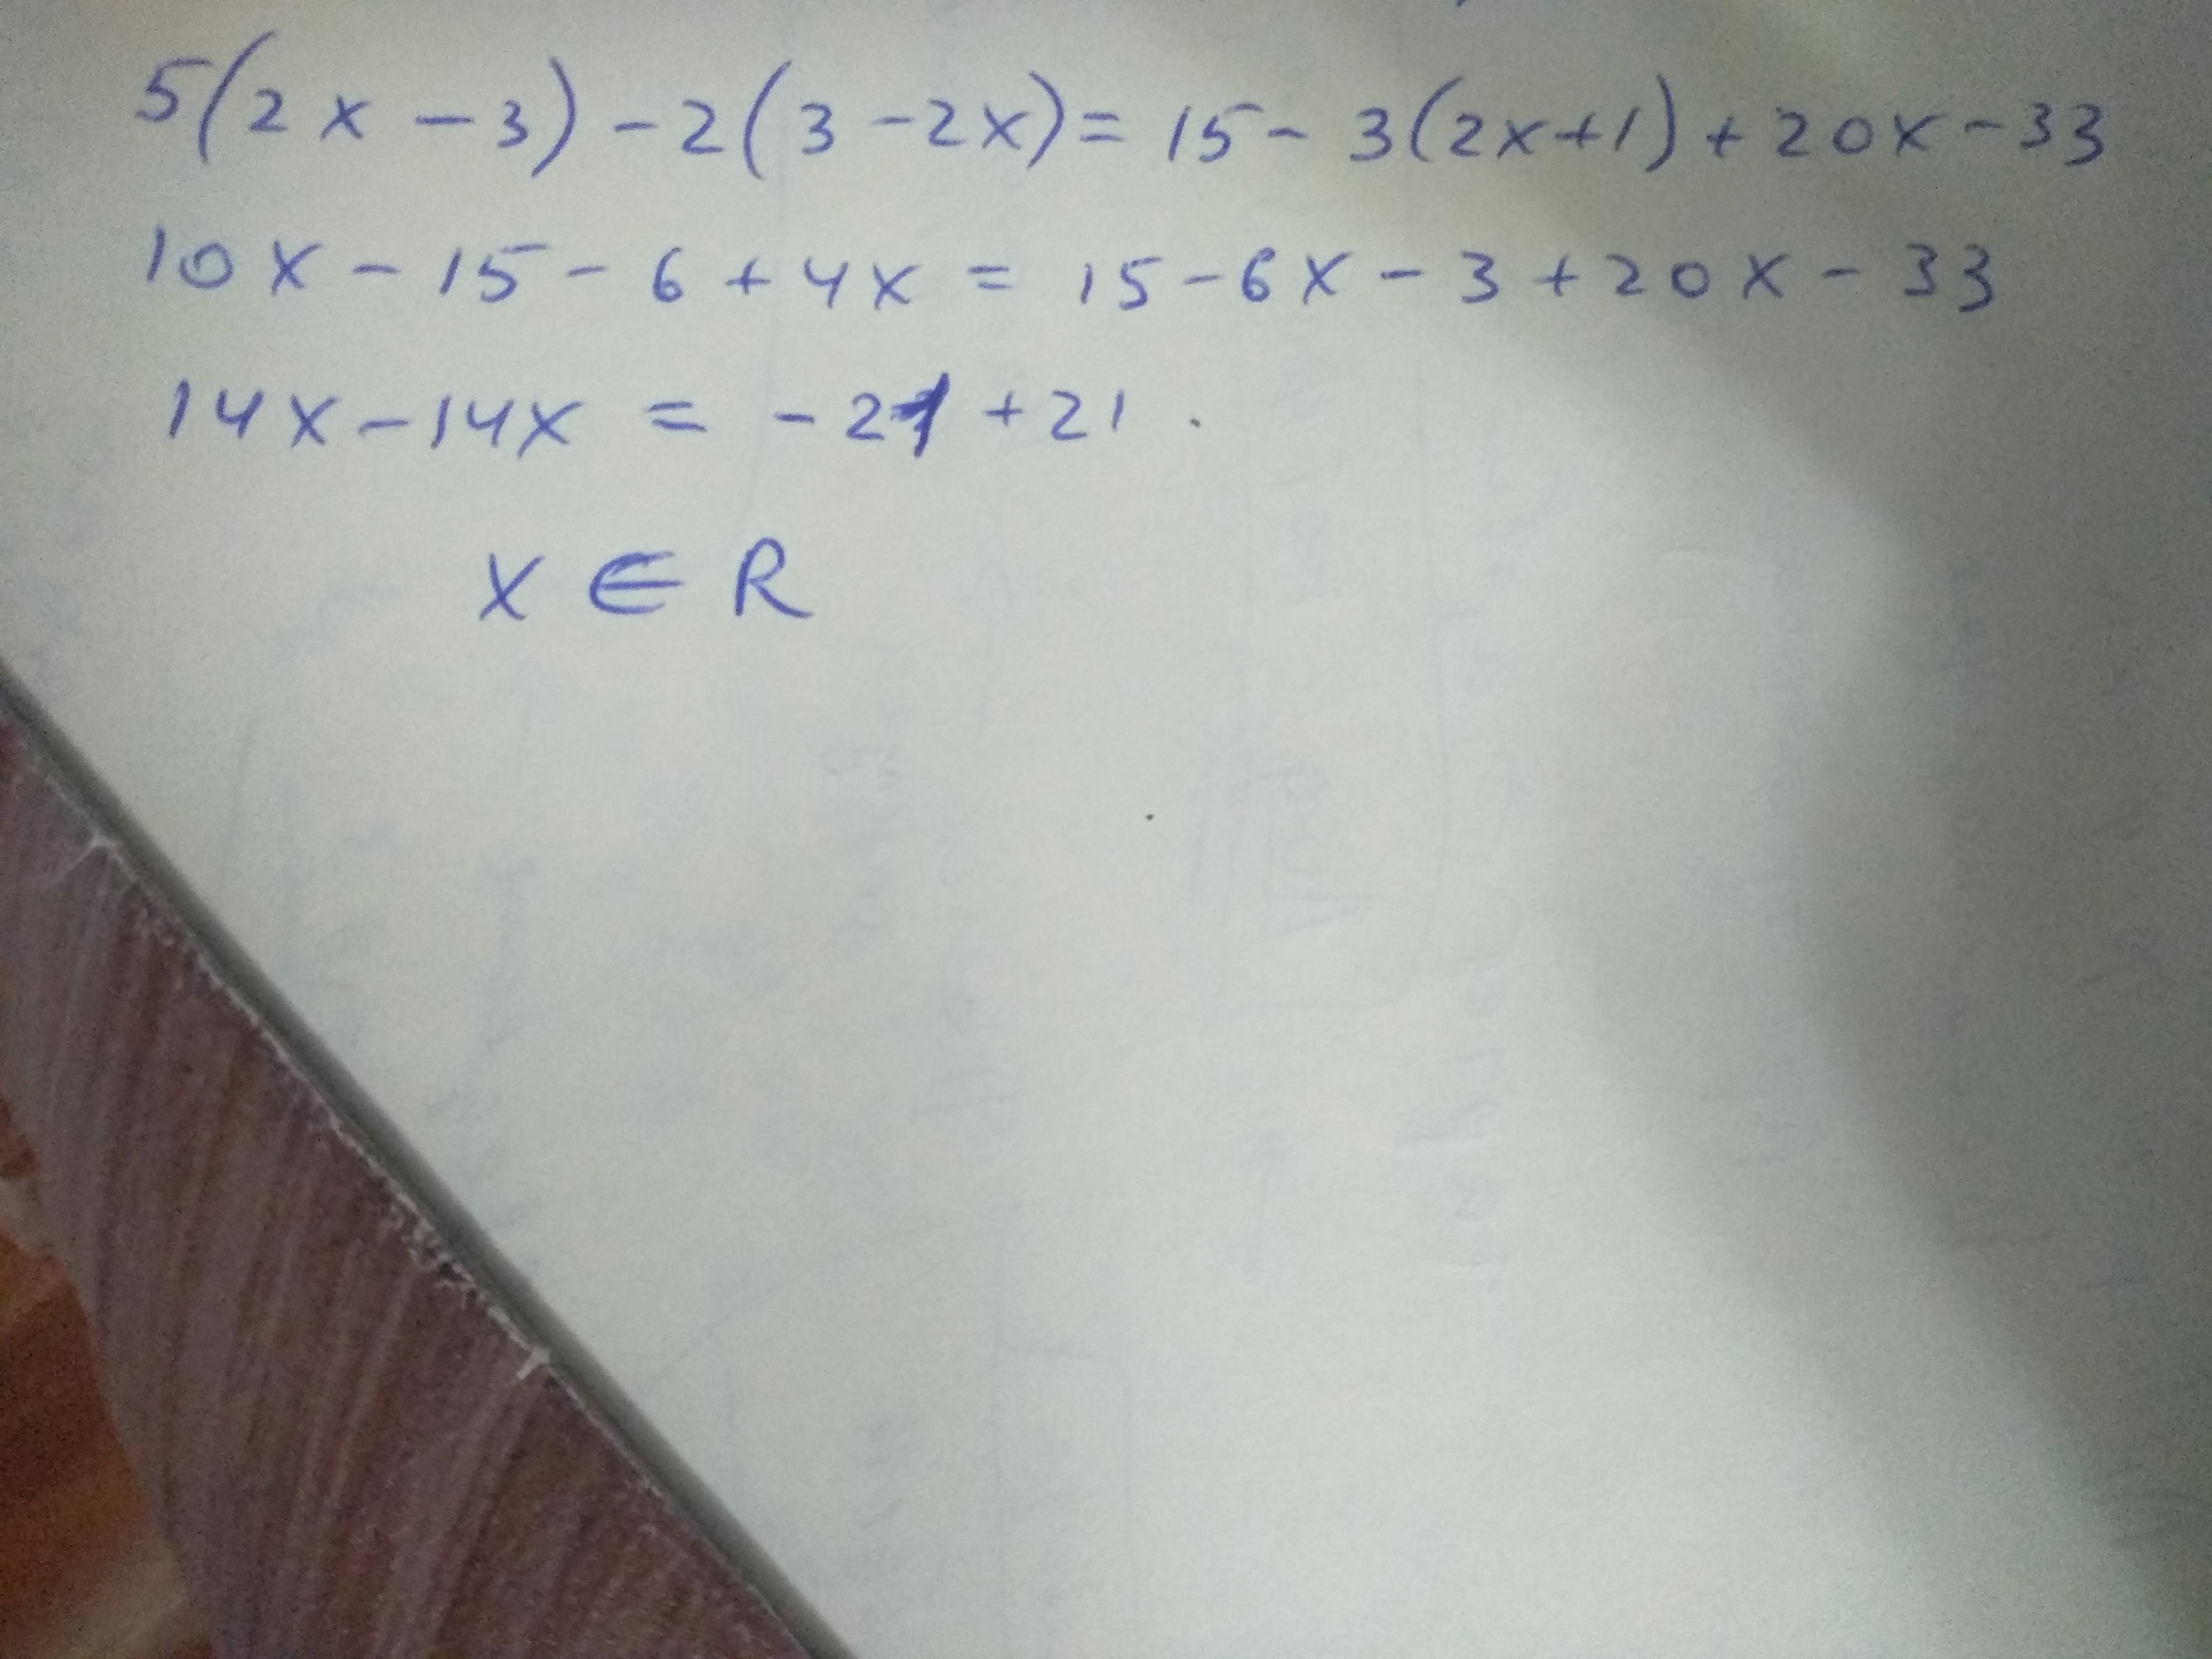 5(2x-3)-2(3-2x)=15-3(2x+1)+20x-33
10x-15-6+4x=15-6x-3+20x-33
14x-14x=-21+21.
x∈R